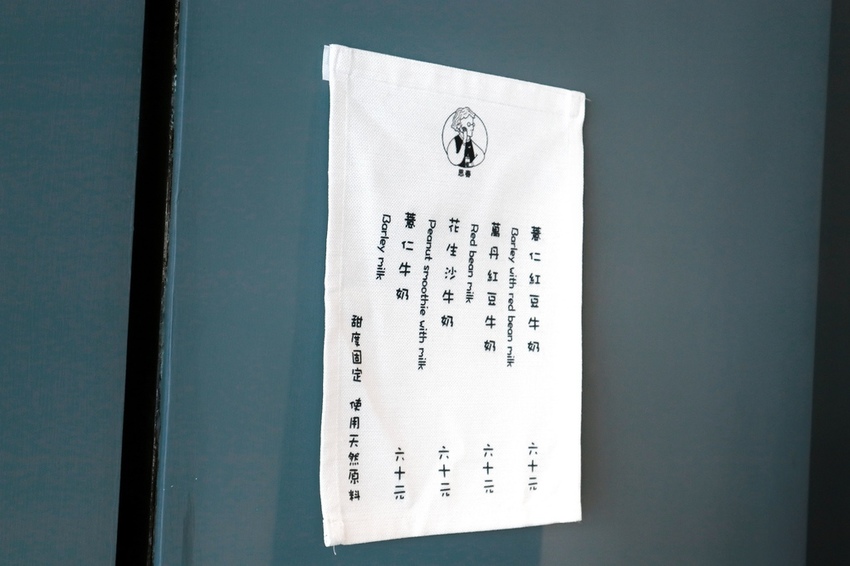 思春
薏仁紅豆牛奶 六十元
Barley with red bean milk
萬丹紅豆牛奶 六十元
Red bean milk
花生沙牛奶 六十元
Peanut smoothie with milk
薏仁牛奶 六十元
Barley milk
甜度固定 使用天然原料